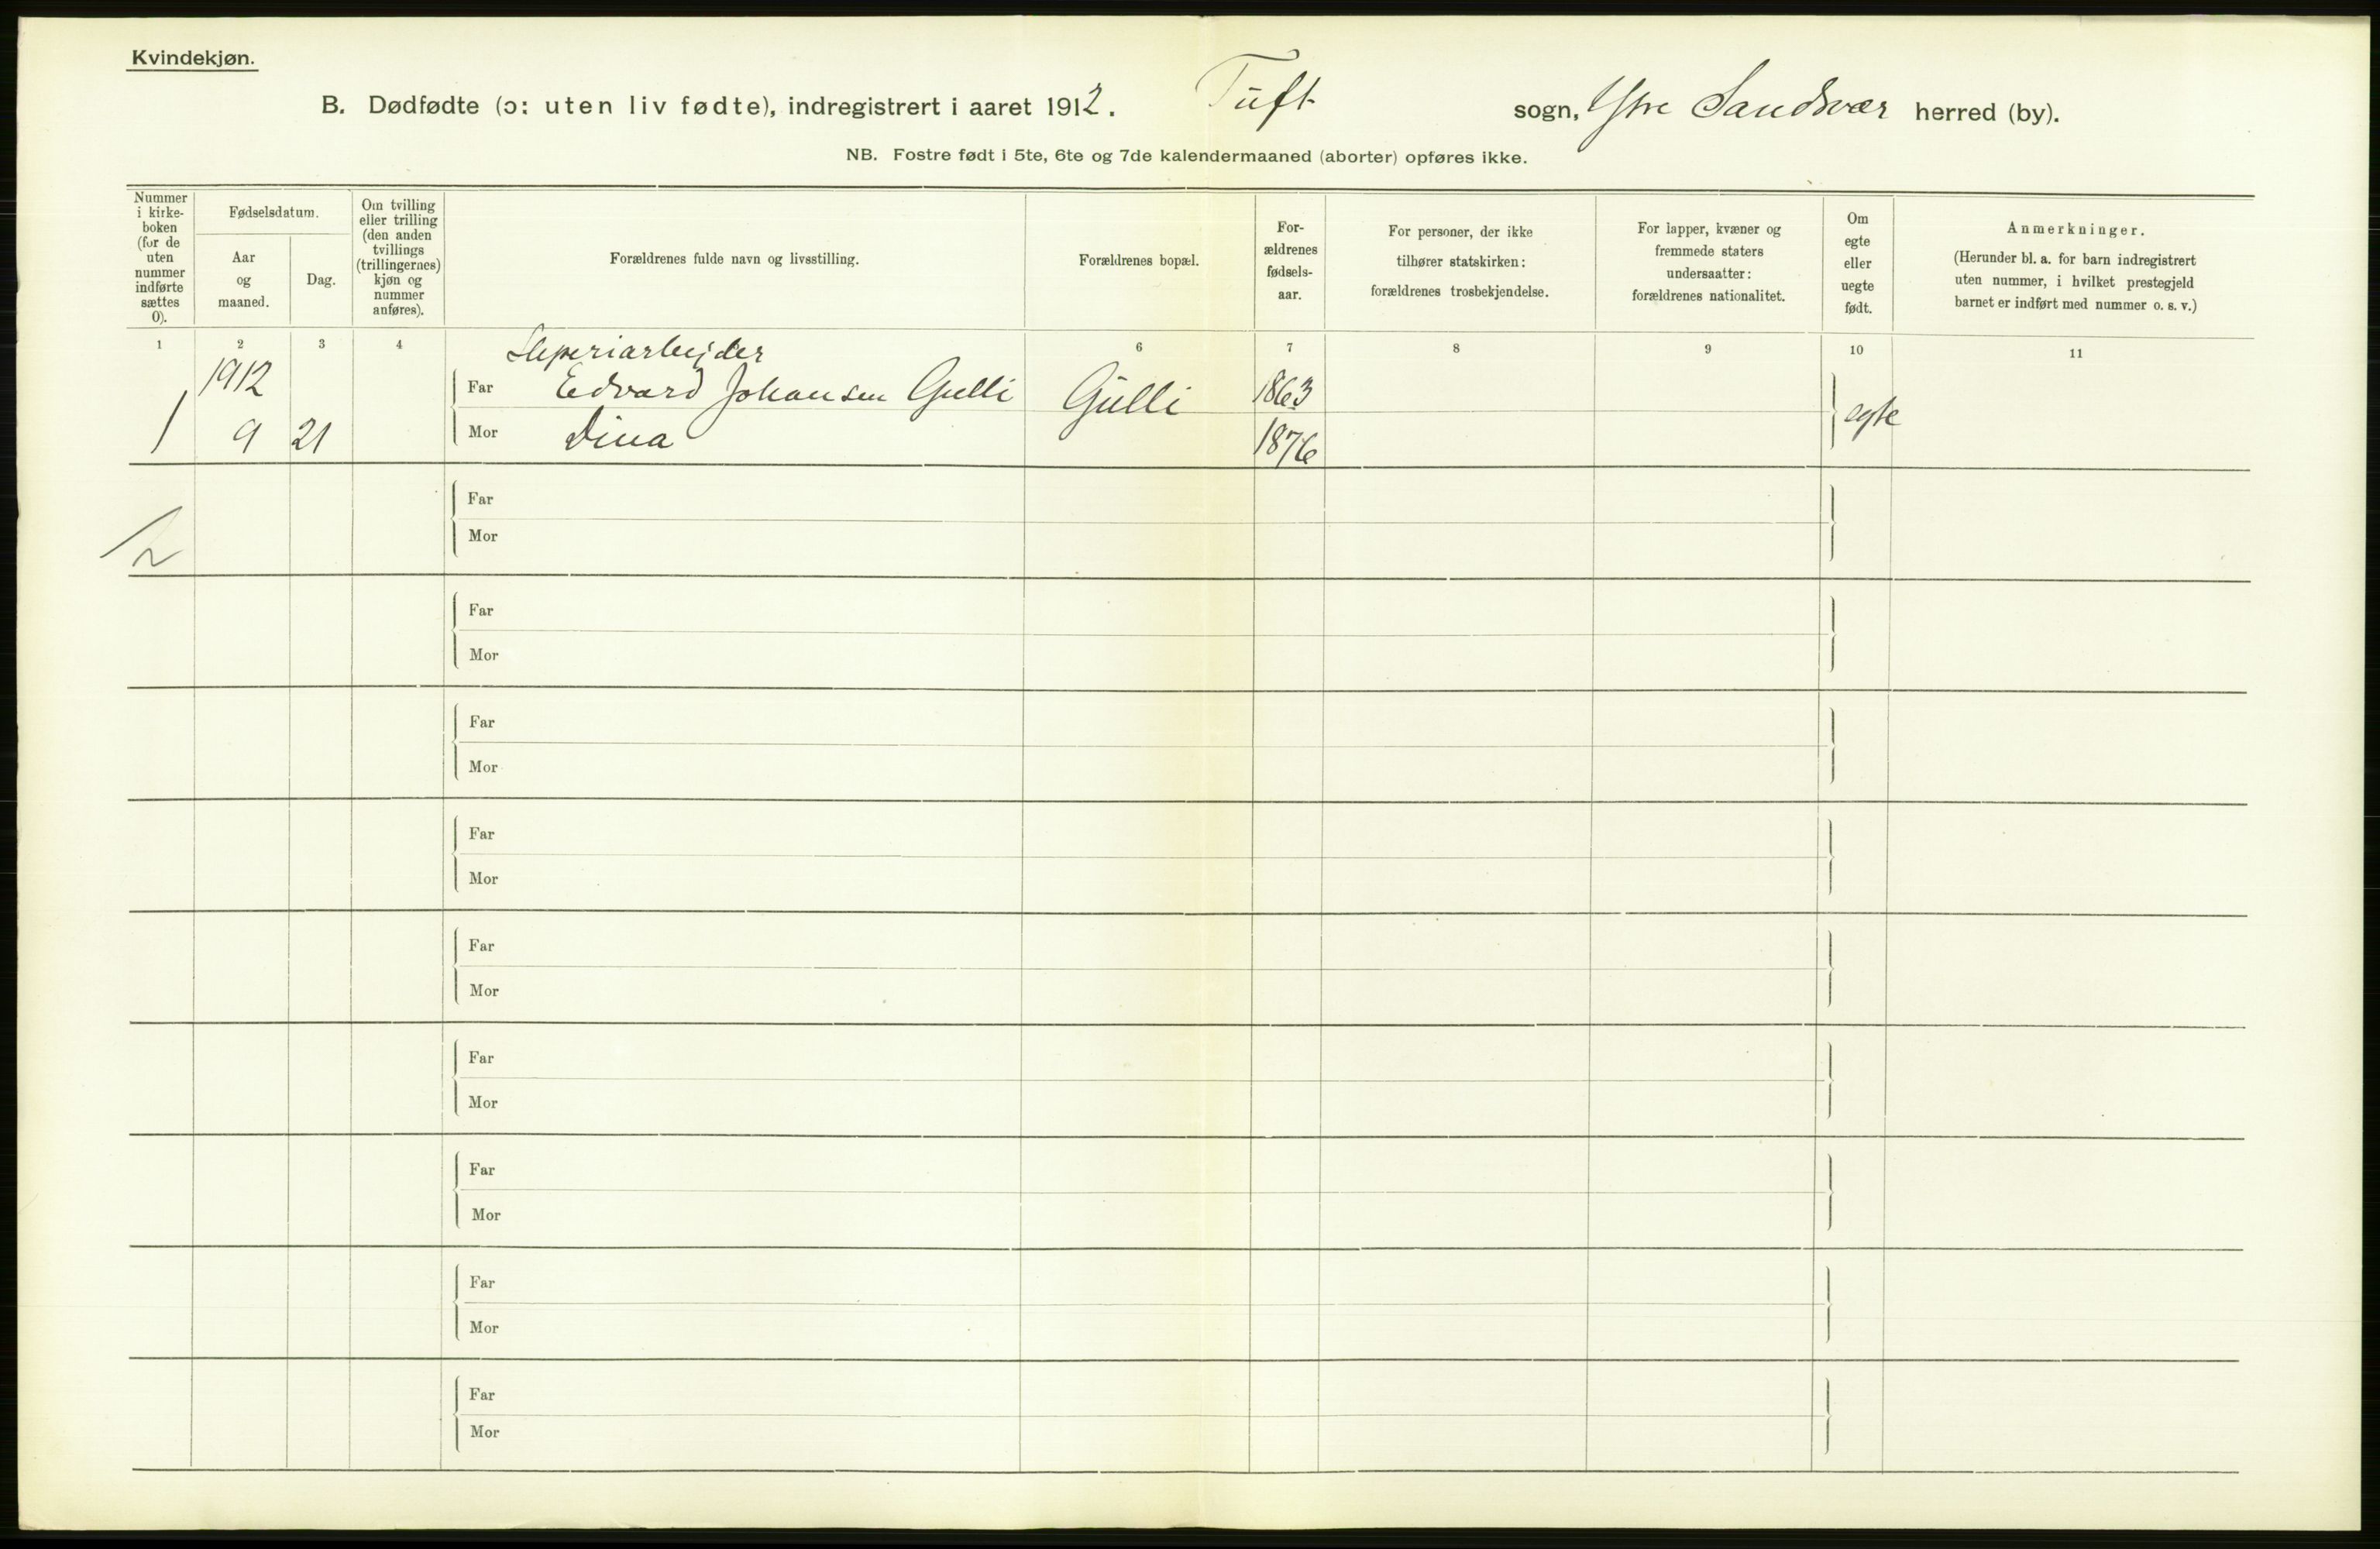 Kvindekjøn.
B. Dødfødte (ɔ: uten liv fødte), indregistrert i aaret 1912. Tuft sogn, Ytre Sandsvær herred (by).
NB. Fostre født i 5te, 6te og 7de kalendermaaned (aborter) opføres ikke.
Nummer
i kirke-
boken
(for de
uten
nummer
indførte
sættes
0).
Fødselsdatum.
Aar
og
maaned.
Dag.
Om tvilling
eller trilling
(den anden
tvillings
(trillingernes)
kjøn og
nummer
anføres).
Forældrenes fulde navn og livsstilling.
Forældrenes bopæl.
For-
ældrenes
fødsels-
aar.
For personer, der ikke
tilhører statskirken:
forældrenes trosbekjendelse.
For lapper, kvæner og
fremmede staters
undersaatter:
forældrenes nationalitet.
Om
egte
eller
uegte
født.
Anmerkninger.
(Herunder bl. a. for barn indregistrert
uten nummer, i hvilket prestegjeld
barnet er indført med nummer o. s. v.)
1 2 3 4 6 7 8 9 10 11
Sliperiarbejder
1912 Far Edvard Johansen Gulli Gulli 1863 egte
1 9 21 Mor Dina 1876
Far
Mor
Far
Mor
Far
Mor
Far
Mor
Far
Mor
Far
Mor
Far
Mor
Far
Mor
Far
Mor